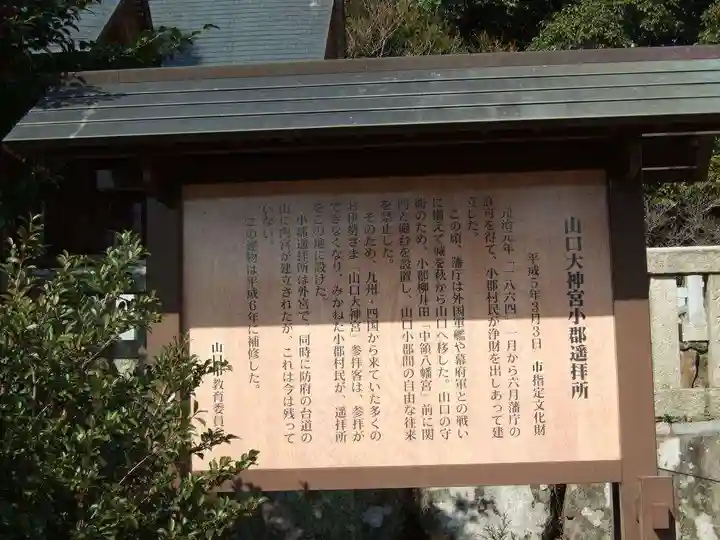 山口大神宮小郡遥拝所
平成5年3月3日 市指定文化財
元治元年(一八六四)一月から六月藩庁の
許可を得て、小郡村民が浄財を出しあって建
立した。
この頃、藩庁は外国軍艦や幕府軍との戦い
に備えて城を萩から山口へ移した。山口の守
衛のため、小郡柳井田「中領八幡宮」前に関
門と砲台を設置し、山口小郡間の自由な往来
を禁止した。
そのため、九州・四国から来ていた多くの
お伊勢さま(山口大神宮)参拝客は、参拝が
できなくなり、みかねた小郡村民が、遥拝所
をこの地に設けた。
小郡遥拝所は外宮で、同時に防府の台道の
山に内宮が建立されたが、これは今は残って
いない。
この建物は平成6年に補修した。
山口市教育委員会